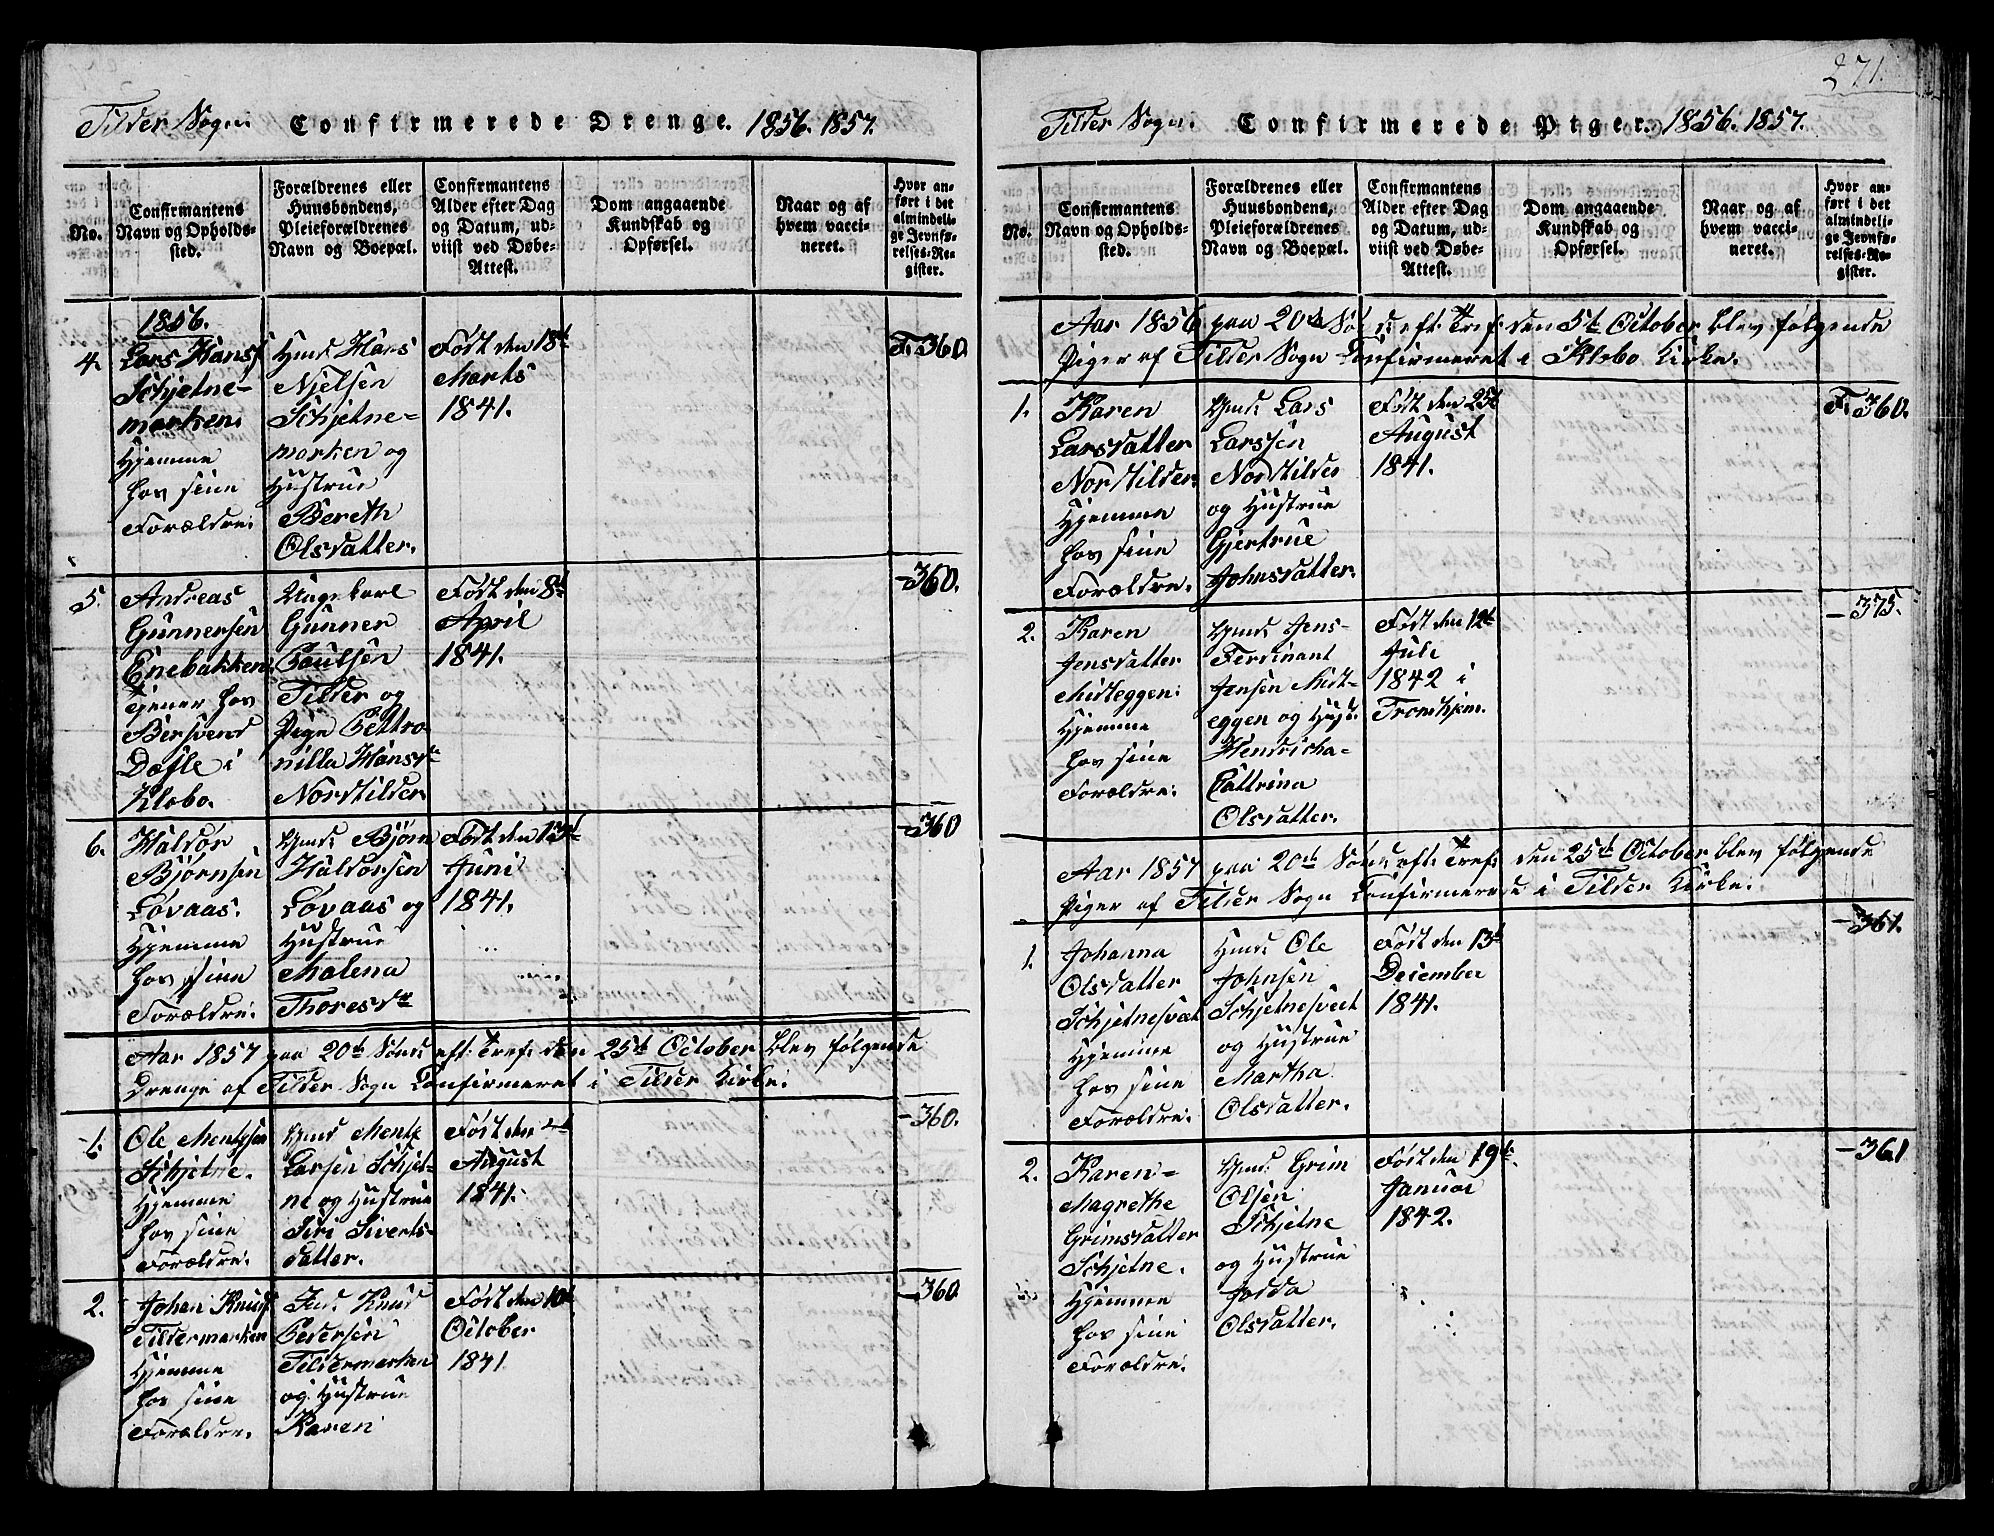 Tilder Sogn. Confirmerede Drenge. 1856. 1857.
No.
Confirmantens
Navn og Opholds-
sted.
Forældrenes eller
Huusbondens,
Pleieforældrenes
Navn og Boepæl.
Confirmantens
Alder efter Dag
og Datum, ud-
viist ved Døbe-
Attest.
Dom angaaende
Kundskab og
Opførsel.
Naar og af
hvem vacci-
neret.
Hvor an-
ført i det
almindeli-
ge Jevnfø-
relses-Re-
gister.
1856.
4.
Lars Hans
Schjelne-
marken.
Hjemme
hos sine
Forældre.
Hmd. Hans
Njelsen
Schjelne-
marken og
Hustrue
Bereth
Olsdatter.
Født den 18d
Marts
1841.
F. 360.
5.
Andreas
Gunnersen
Enebakken.
Tjener hos
Bersvend
Dosle i
Klæbo.
Ungekarl
Gunner
Paulsen
Tilder og
Pige Pettro
nilla Hansd
Nordtilder
Født den 8d
April
1841.
-360.
6.
Haldor
Bjørnsen
Løvaas.
Hjemme
hos sine
Forældre.
Hmd. Bjørn
Haldorsen
Løvaas og
Hustrue
Malena
Thoresdr
Født den 13d
Juni
1841.
-360
Aar 1857 paa 20de Sønd. eft. Tref. den 25de October blev følgende
Drenge af Tilder Sogn Confirmeret i Tilder Kirke.
1.
Ole Mentzsen
Schjelne.
Hjemme
hos sine
Forældre.
Hmd. Mentz
Larsen Schjel-
ne og Hustrue
Siri Siverts-
datter.
Født den
August
1841.
-360.
2.
Johan Knuds
Tildermarken
Hjemme
hos sine
Forældre.
Ind. Knud
Pedersen
Tildermarken
og Hustrue
Karen
Født den 10d
October
1841
-360
271.
Tilder Sogn. Confirmerede Piger. 1856. 1857.
No.
Confirmantens
Navn og Opholds-
sted.
Forældrenes eller
Huusbondens,
Pleieforældrenes
Navn og Boepæl.
Confirmantens
Alder efter Dag
og Datum, ud-
viist ved Døbe-
Attest.
Dom angaaende
Kundskab og
Opførsel.
Naar og af
hvem vacci-
neret.
Hvor an-
ført i det
almindeli-
ge Jevnfø-
relses-Re-
gister.
Aar 1856 paa 20de Sønd. eft. Tref. den 5te October blev følgende
Piger af Tilder Sogn Confirmeret i Klæbo Kirke.
1.
Karen
Larsdatter
Nordtilder.
Hjemme
hos sine
Forældre.
Hmd. Lars
Larssen
Nordtilder
og Hustrue
Gjertrue
Johnsdatter.
Født den 25d
August
1841.
F. 360.
2.
Karen
Jensdatter
Midteggen.
Hjemme
hos sine
Forældre.
Hmd. Jens-
Ferdinant
Jensen Midt-
eggen og Hust.
Hendricha-
Cattrina
Olsdatter.
Født den 12d
Juli
1842 i
Tromhjem.
-375.
Aar 1857 paa 20de Sønd. eft. Tref. den 25de October blev følgende
Piger af Tilder Sogn Confirmerede i Tilder Kirke.
1.
Johanna
Olsdatter
Schjelnesvet
Hjemme
hos sine
Forældre.
Hmd. Ole
Johnsen
Schjelnesveet
og Hustrue
Martha
Olsdatter.
Født den 13d
December
1841.
-361.
2.
Karen-
Magrethe
Grimsdatter
Schjelne.
Hjemme
hos sine
Forældre.
Hmd. Grim
Olsen
Schjelne
og Hustrue
Jorda
Olsdatter.
Født den 19d.
Januar
1842.
-361